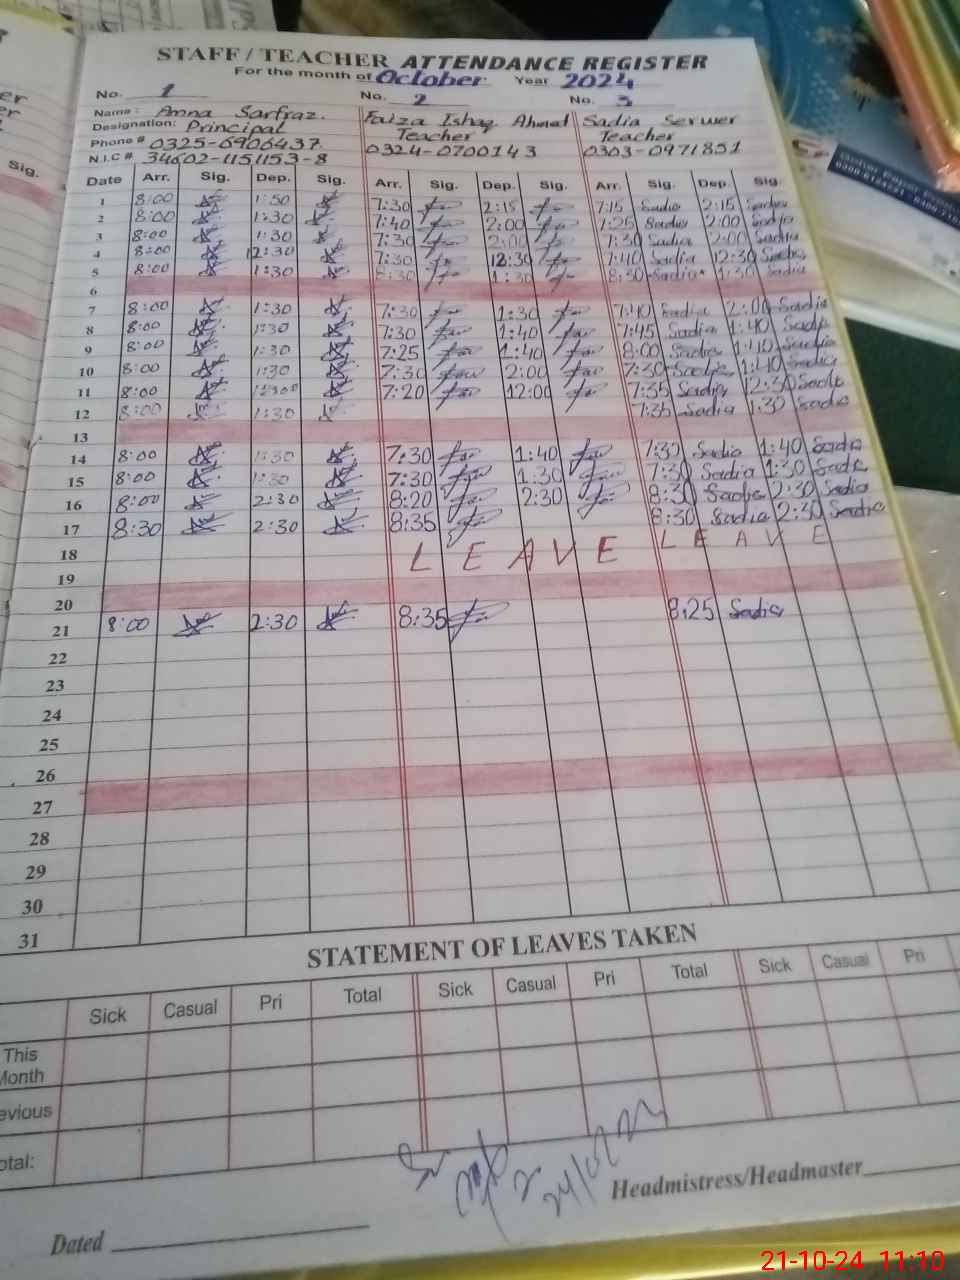 STAFF / TEACHER ATTENDANCE REGISTER
For the month of October. Year 2024
No. 1 No. 2 No. 3
Name: Amna Sarfraz. Faiza Ishaq Ahmad Sadia Serwer
Designation: Principal Teacher Teacher
Phone # 0325-6906437. 0324-0700143 0303-0971851
N.I.C # 34602-1151153-8
Date Arr. Sig. Dep. Sig. Arr. Sig. Dep. Sig. Arr. Sig. Dep. Sig.
1 8:00 1:30 7:30 2:15 7:15 Sadia 2:15 Sadia
2 8:00 1:30 7:40 2:00 7:25 Sadia 2:00 Sadia
3 8:00 1:30 7:30 2:00 7:30 Sadia 2:00 Sadia
4 8:00 12:30 7:30 12:30 7:40 Sadia 12:30 Sadia
5 8:00 1:30 8:30 1:30 8:30 Sadia 1:30 Sadia
6
7 8:00 1:30 7:30 1:30 7:40 Sadia 2:00 Sadia
8 8:00 1:30 7:30 1:40 7:45 Sadia 1:40 Sadia
9 8:00 1:30 7:25 1:40 8:00 Sadia 1:40 Sadia
10 8:00 1:30 7:30 2:00 7:30 Sadia 1:40 Sadia
11 8:00 7:20 12:00 7:35 Sadia 12:30 Sadia
12 8:00 1:30 7:35 Sadia 1:30 Sadia
13
14 8:00 1:30 7:30 1:40 7:30 Sadia 1:40 Sadia
15 8:00 1:30 7:30 1:30 7:30 Sadia 1:30 Sadia
16 8:00 2:30 8:20 2:30 8:30 Sadia 2:30 Sadia
17 8:30 2:30 8:35 8:30 Sadia 2:30 Sadia
18 LEAVE LEAVE
19
20
21 8:00 2:30 8:35 8:25 Sadia
22
23
24
25
26
27
28
29
30
31
STATEMENT OF LEAVES TAKEN
Sick Casual Pri Total Sick Casual Pri Total Sick Casual Pri
This
Month
evious
otal:
Headmistress/Headmaster
Dated
21-10-24 11:10
Sig.